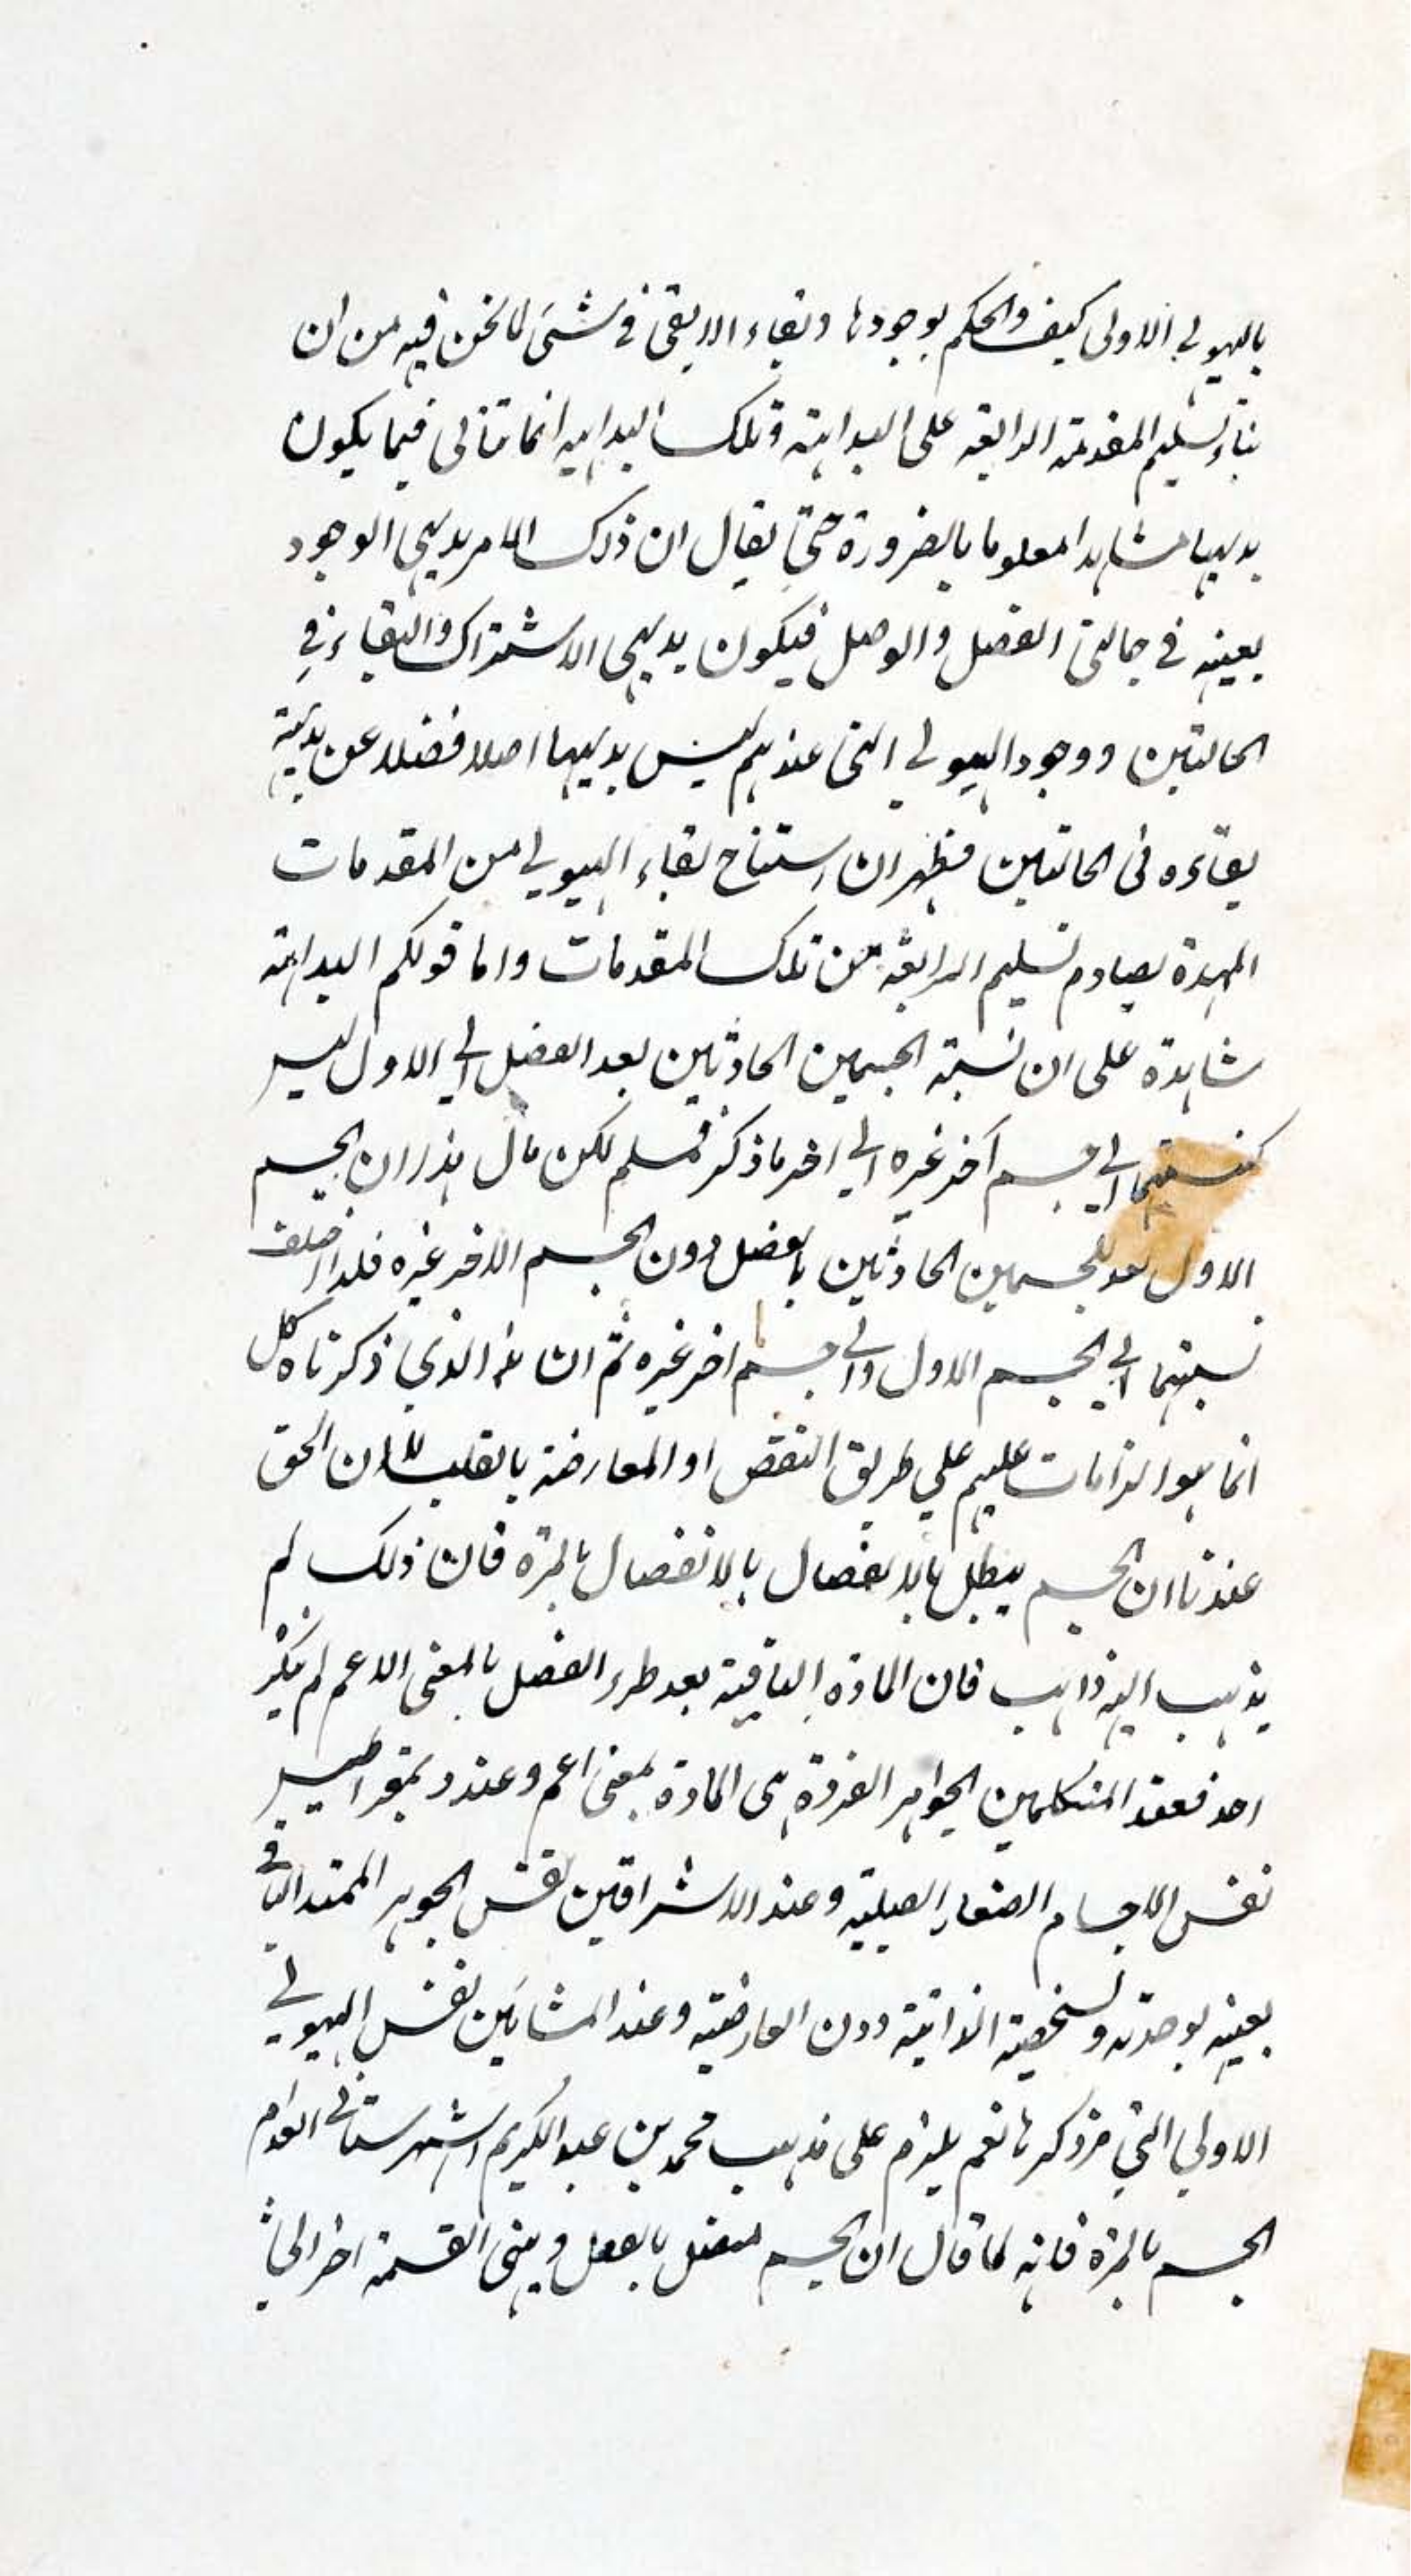 بالهيولي الاولى كيف والحكم بوجودها وبقاء الا يبقى في شئ لا نحن فيه من ان
بناء تسليم المقدمة الرابعة على البداهة وتلك البداهة انما تتأتى فيما يكون
بديهيا مشاهدا معلوما بالضرورة حتى يقال ان ذلك الامر بديهي الوجود
بعينه في حالتي الفصل والوصل فيكون بديهي الاشتراك والبقاء في
الحالتين ووجود الهيولي التي عندهم ليس بديهيا اصلا فضلا عن بديهية
بقائه في الحالتين فظهر ان استنتاج بقاء الهيولي من المقدمات
الممهدة يصادم تسليم الرابعة من تلك المقدمات واما قولكم البداهة
شاهدة على ان نسبة الجسمين الحادثين بعد الفصل الي الاول ليس
كنسبتهما الي جسم آخر غيره الي اخر ما ذكر فمسلم لكن مآل هذا ان الجسم
الاول معد للجسمين الحادثين بالفصل دون الجسم الاخر غيره فلذا اختلف
نسبتهما الي الجسم الاول والي جسم اخر غيره ثم ان هذا الذي ذكرناه كل
انما هو الزامات عليهم علي طريق النقض او المعارضة بالقلب لا ان الحق
عندنا ان الجسم يبطل بالانفصال بالانفصال بالمرة فان ذلك لم
يذهب اليه ذاهب فان المادة الباقية بعد طرء الفصل بالمعنى الاعم لم ينكر
احد فعند المتكلمين الجواهر الفردة هى المادة بمعنى اعم وعند ديمقراطيس
نفس الاجسام الصغار الصلبية وعند الاشراقين نفس الجوهر الممتد الباقي
بعينه بوحدته وتشخصية الذاتية دون العارضية وعند المشائين نفس الهيولي
الاولي التي مر ذكرها نعم يلزم على مذهب محمد بن عبد الكريم الشهرستاني انعدام
الجسم بالمرة فانه لما قال ان الجسم متصل بالفعل وينهى القسمة اخرا الي